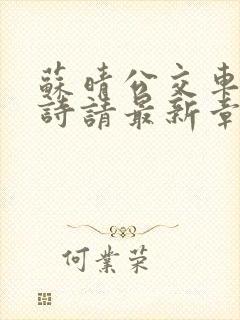 蘇晴公交車
詩請最新章
何業荣